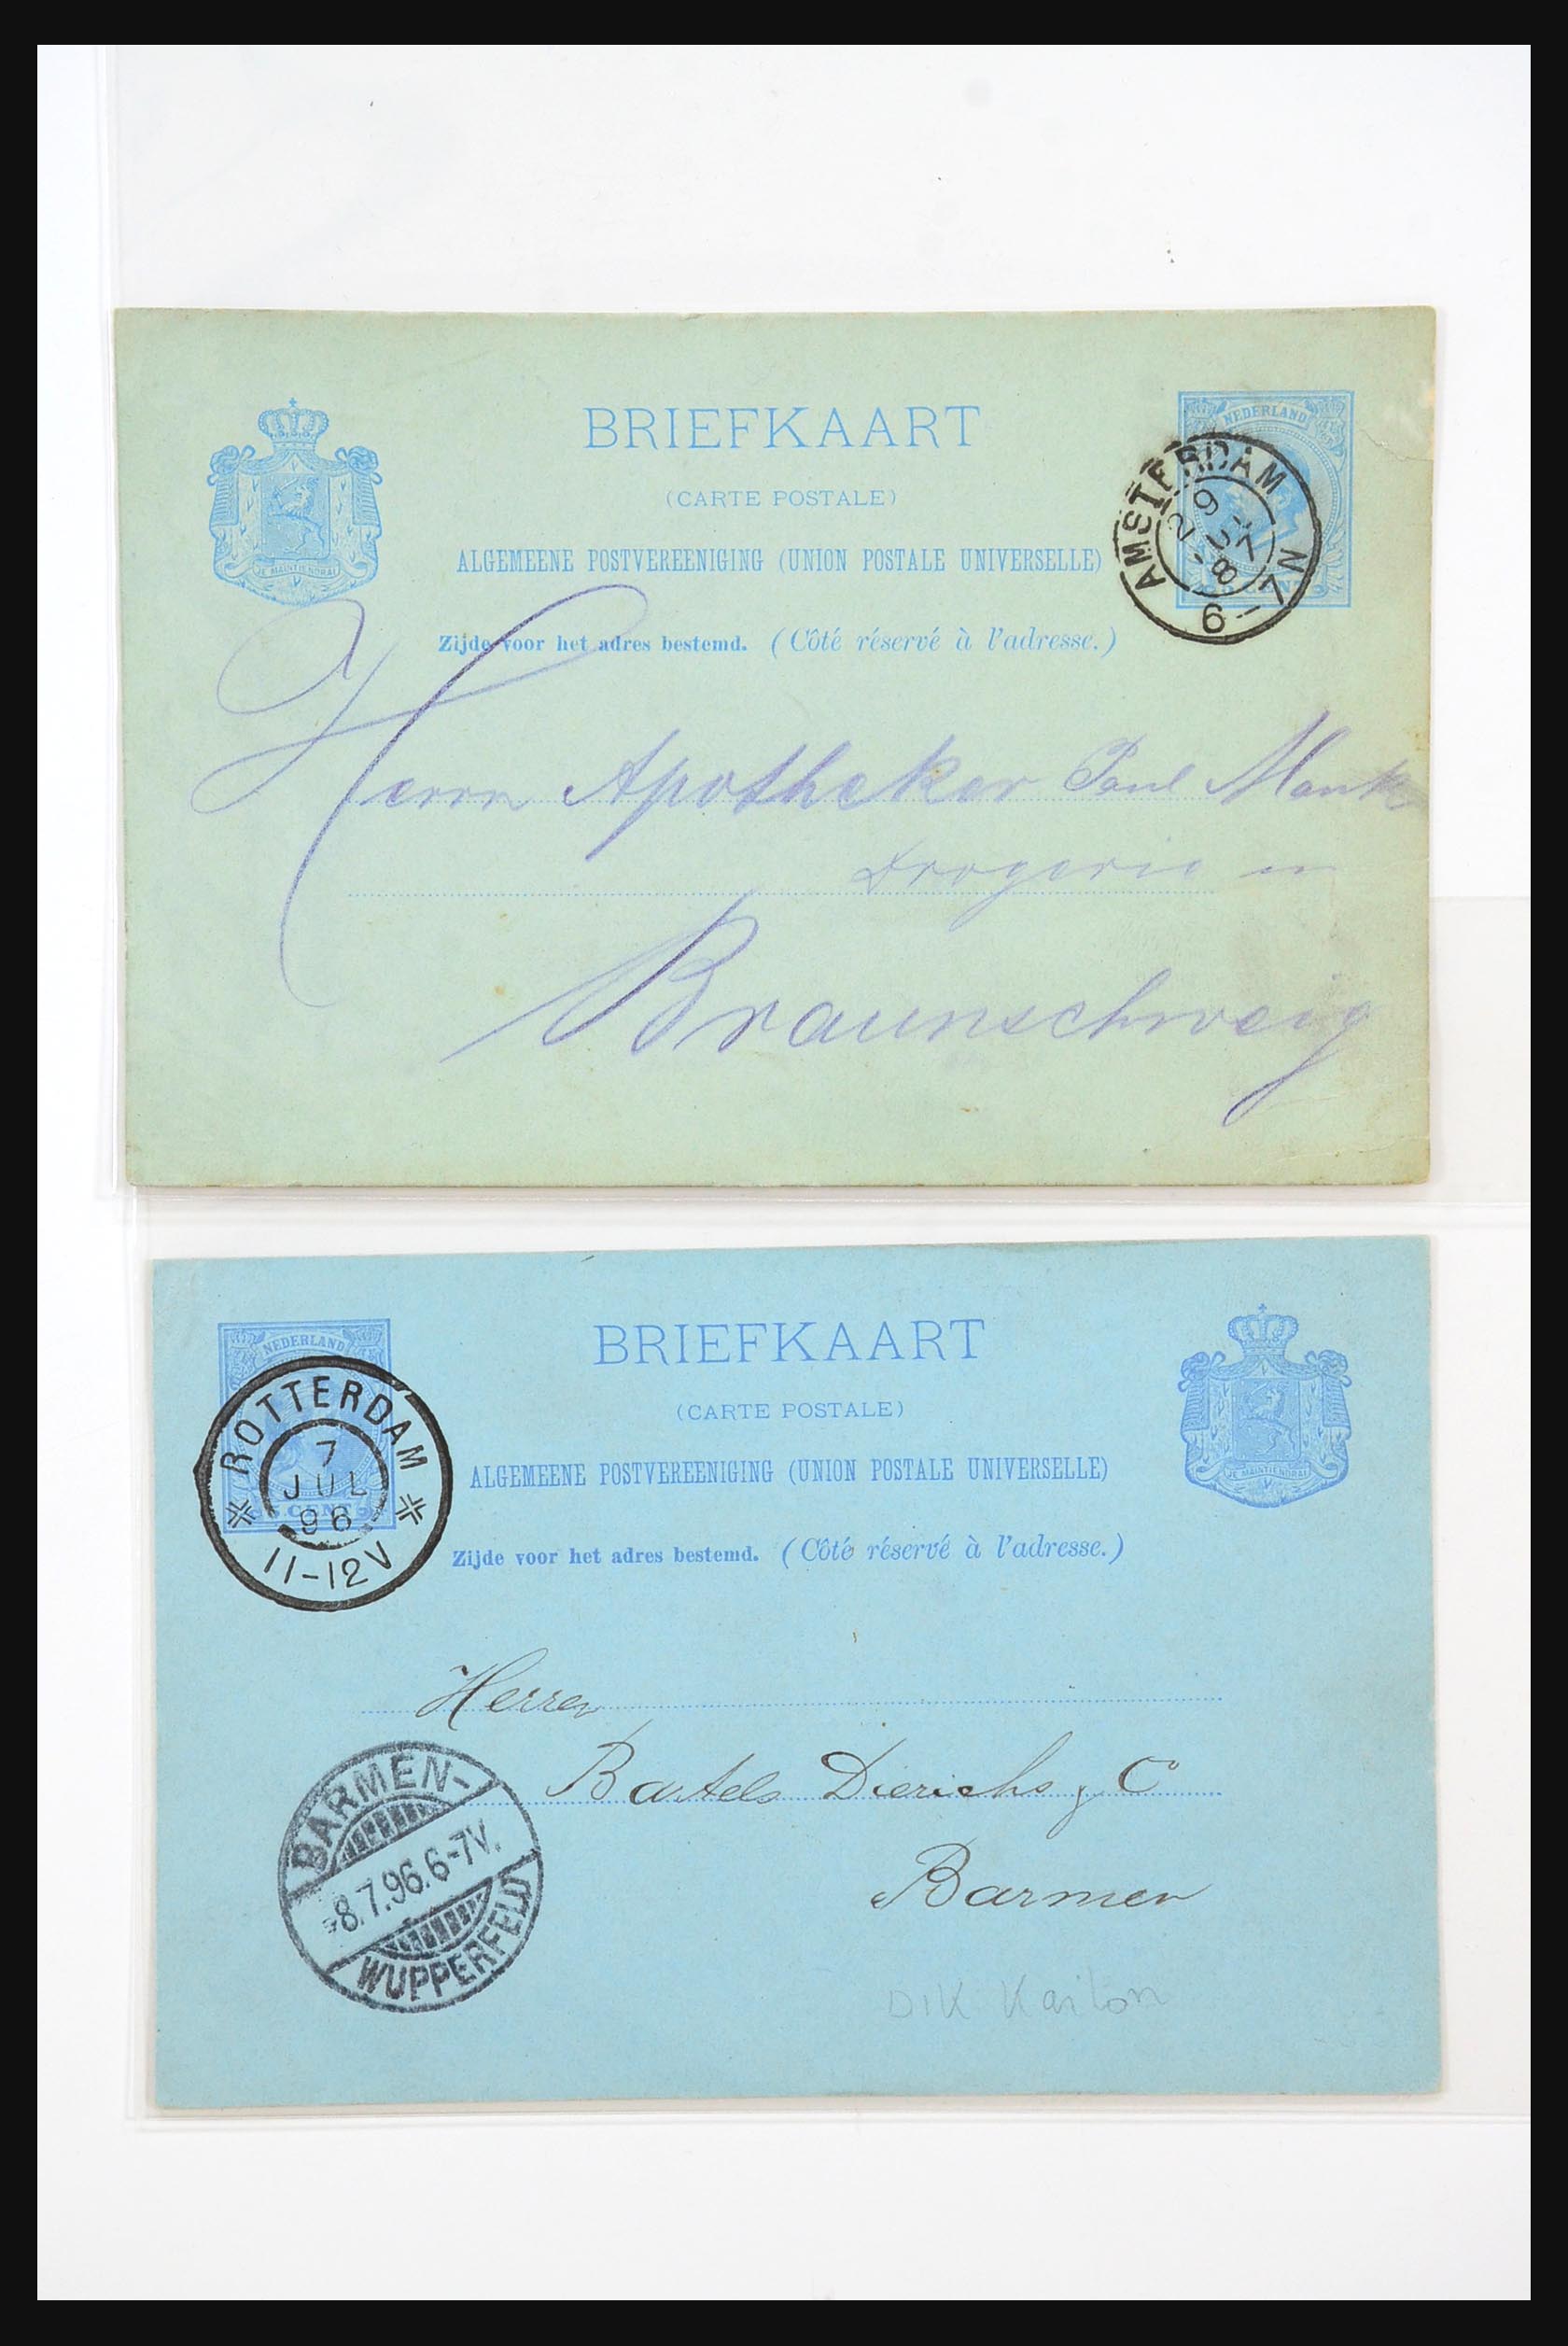 BRIEFKAART
(CARTE POSTALE)
ALGEMEENE POSTVEREENIGING (UNION POSTALE UNIVERSELLE)
Zijde voor het adres bestemd. (Côté réservé à l'adresse.)
JE MAINTIENDRAI
NEDERLAND
AMSTERDAM
29
87
6-7N
Herrn Apotheker Paul Mank
Drogerie in
Braunschweig
NEDERLAND
5 CENT
ROTTERDAM
7
JUL
96
11-12V
BRIEFKAART
(CARTE POSTALE)
ALGEMEENE POSTVEREENIGING (UNION POSTALE UNIVERSELLE)
Zijde voor het adres bestemd. (Côté réservé à l'adresse.)
JE MAINTIENDRAI
Herren
Bartels Dierichs & C
Barmen
BARMEN-
-8.7.96.6-7V.
WUPPERFELD
DIK Karton